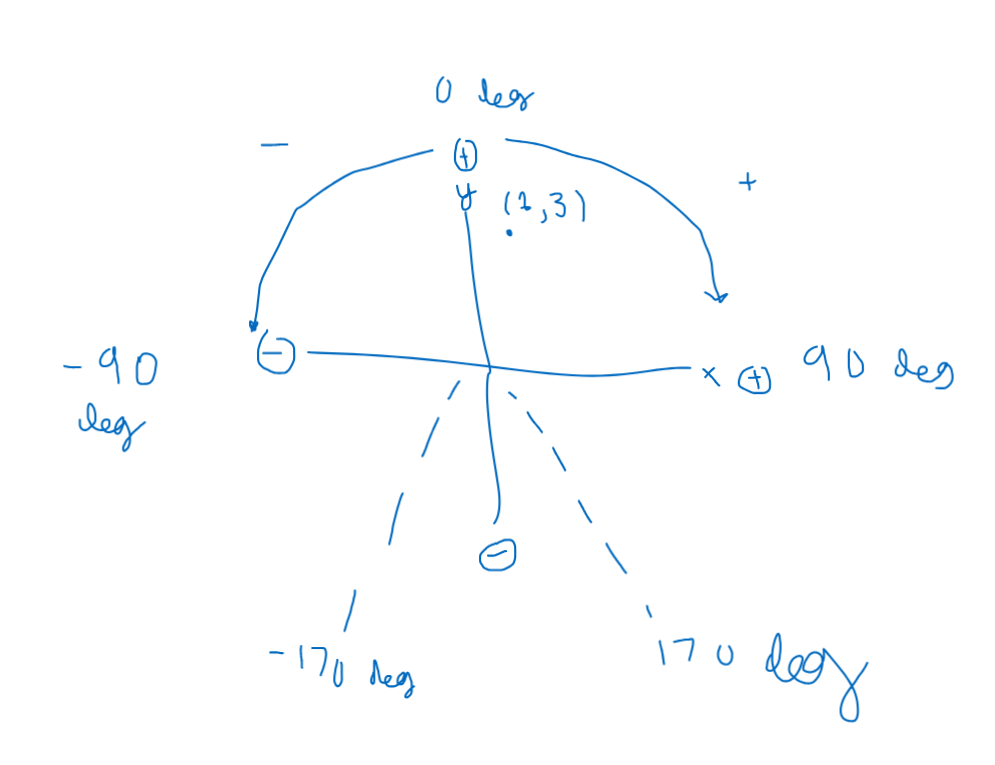 0 deg
−
+
(+)
y
(1,3)
(−)
x
(+)
90 deg
-90
deg
(−)
-170 deg
170 deg